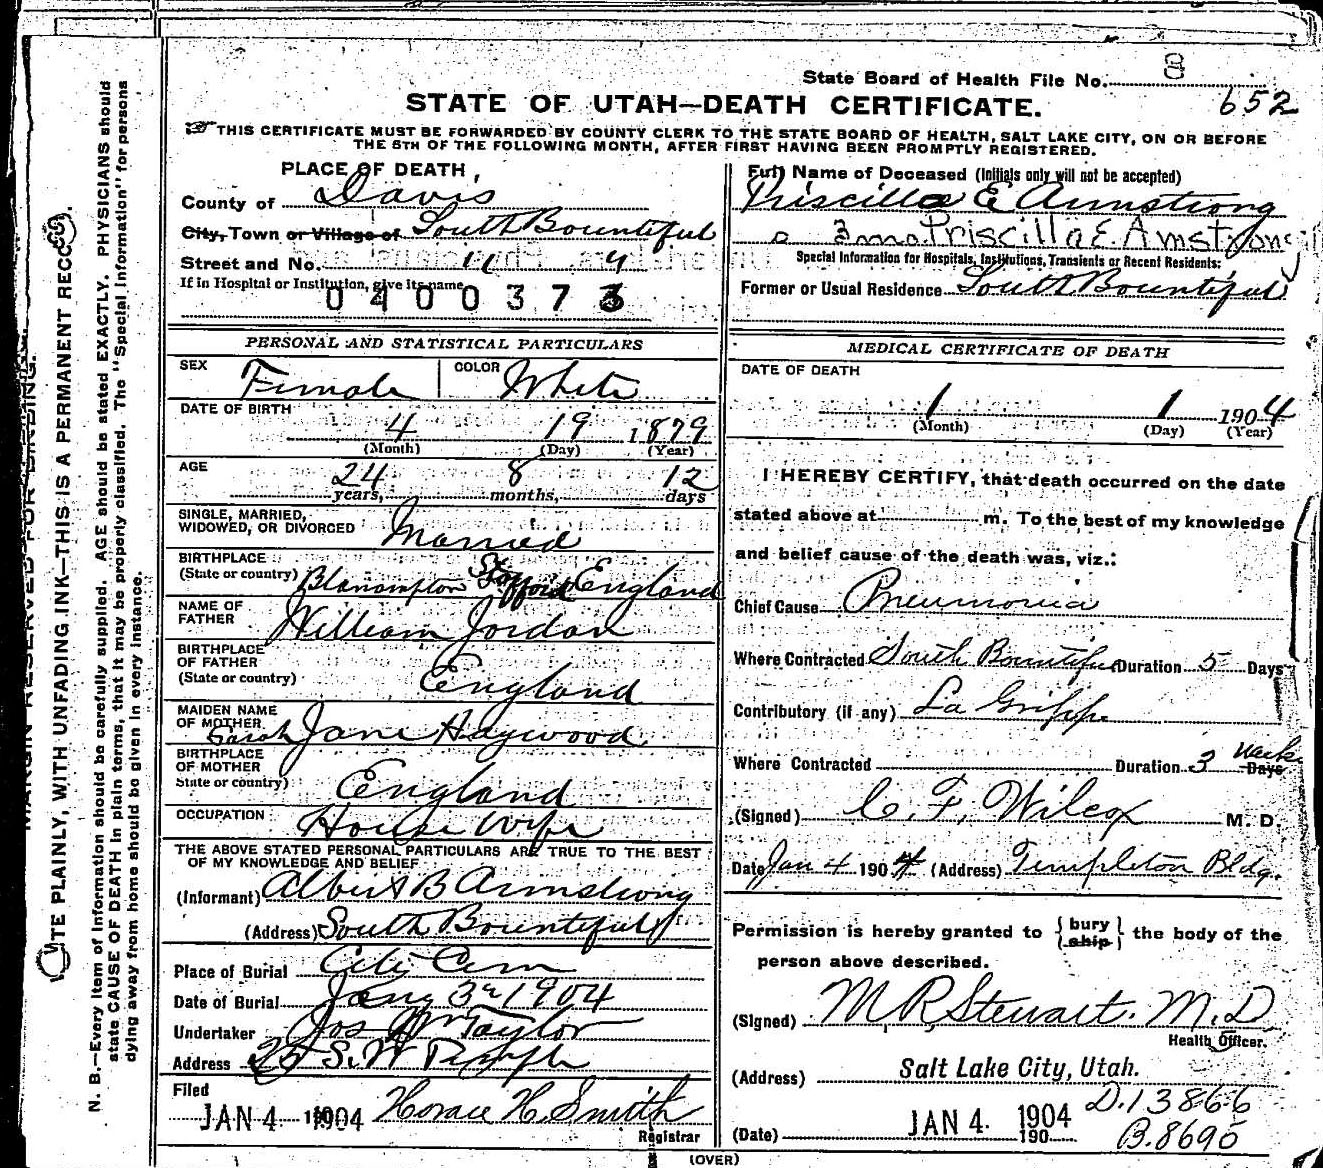 State Board of Health File No. 8
652
STATE OF UTAH—DEATH CERTIFICATE.
THIS CERTIFICATE MUST BE FORWARDED BY COUNTY CLERK TO THE STATE BOARD OF HEALTH, SALT LAKE CITY, ON OR BEFORE
THE 5TH OF THE FOLLOWING MONTH, AFTER FIRST HAVING BEEN PROMPTLY REGISTERED.
PLACE OF DEATH,
County of Davis
City, Town or Village of South Bountiful
Street and No.
If in Hospital or Institution, give its name
0400373
Full Name of Deceased (Initials only will not be accepted)
Priscilla E Armstrong
Priscilla E. Armstrong
Special Information for Hospitals, Institutions, Transients or Recent Residents:
Former or Usual Residence South Bountiful
PERSONAL AND STATISTICAL PARTICULARS
SEX Female COLOR White
DATE OF BIRTH
4 19 1879
(Month) (Day) (Year)
AGE
24 8 12
years, months, days
SINGLE, MARRIED,
WIDOWED, OR DIVORCED Married
BIRTHPLACE
(State or country) Stafford England
NAME OF
FATHER William Jordan
BIRTHPLACE
OF FATHER
(State or country) England
MAIDEN NAME
OF MOTHER Sarah Jane Haywood
BIRTHPLACE
OF MOTHER
State or country) England
OCCUPATION House Wife
THE ABOVE STATED PERSONAL PARTICULARS ARE TRUE TO THE BEST
OF MY KNOWLEDGE AND BELIEF
(Informant) Albert B Armstrong
(Address) South Bountiful
Place of Burial City Cem
Date of Burial Jany 3rd 1904
Undertaker Jos Wm Taylor
Address 25 S. W Temple
Filed
JAN 4 1904 Horace H. Smith
Registrar
MEDICAL CERTIFICATE OF DEATH
DATE OF DEATH
1 1 1904
(Month) (Day) (Year)
I HEREBY CERTIFY, that death occurred on the date
stated above at m. To the best of my knowledge
and belief cause of the death was, viz.:
Chief Cause Pneumonia
Where Contracted South Bountiful Duration 5 Days
Contributory (if any) La Grippe
Where Contracted Duration 3 Weeks Days
(Signed) C. F. Wilcox M. D.
Date Jan 4 1904 (Address) Templeton Bldg.
Permission is hereby granted to { bury ship } the body of the
person above described.
(Signed) M R Stewart. M. D
Health Officer.
(Address) Salt Lake City, Utah.
D. 13866
(Date) JAN 4 1904 190
B. 8695
(OVER)
MARGIN RESERVED FOR BINDING.
WRITE PLAINLY, WITH UNFADING INK—THIS IS A PERMANENT RECORD.
N. B.—Every item of information should be carefully supplied. AGE should be stated EXACTLY. PHYSICIANS should
state CAUSE OF DEATH in plain terms, that it may be properly classified. The "Special Information" for persons
dying away from home should be given in every instance.